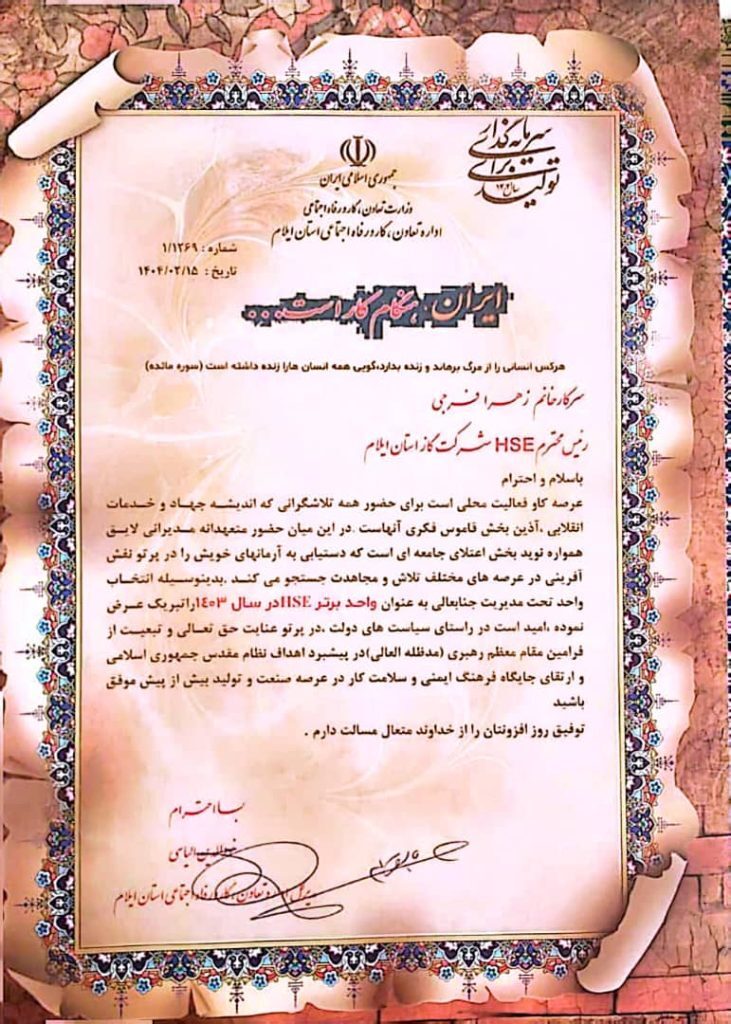 سرمایه گذاری
برای
تولید
سال ۱۴۰۴
جمهوری اسلامی ایران
وزارت تعاون، کار و رفاه اجتماعی
اداره تعاون، کار و رفاه اجتماعی استان ایلام
شماره : ۱/۱۲۶۹
تاریخ : ۱۴۰۴/۰۲/۱۵
ایران، هنگام کار است...
هرکس انسانی را از مرگ برهاند و زنده بدارد،گویی همه انسان هارا زنده داشته است (سوره مائده)
سرکارخانم زهرا فرجی
رئیس محترم HSE شرکت گاز استان ایلام
باسلام و احترام
عرصه کاو فعالیت محلی است برای حضور همه تلاشگرانی که اندیشه جهاد و خدمات
انقلابی .آذین بخش قاموس فکری آنهاست .در این میان حضور متعهدانه مدیرانی لایق
همواره نوید بخش اعتلای جامعه ای است که دستیابی به آرمانهای خویش را در پرتو نقش
آفرینی در عرصه های مختلف تلاش و مجاهدت جستجو می کند .بدینوسیله انتخاب
واحد تحت مدیریت جنابعالی به عنوان واحد برتر HSEدر سال ۱۴۰۳راتبریک عرض
نموده ،امید است در راستای سیاست های دولت ،در پرتو عنایت حق تعالی و تبعیت از
فرامین مقام معظم رهبری (مدظله العالی)در پیشبرد اهداف نظام مقدس جمهوری اسلامی
و ارتقای جایگاه فرهنگ ایمنی و سلامت کار در عرصه صنعت و تولید بیش از پیش موفق
باشید
توفیق روز افزونتان را از خداوند متعال مسالت دارم .
با احترام
الیاسی
اداره تعاون، کار و رفاه اجتماعی استان ایلام